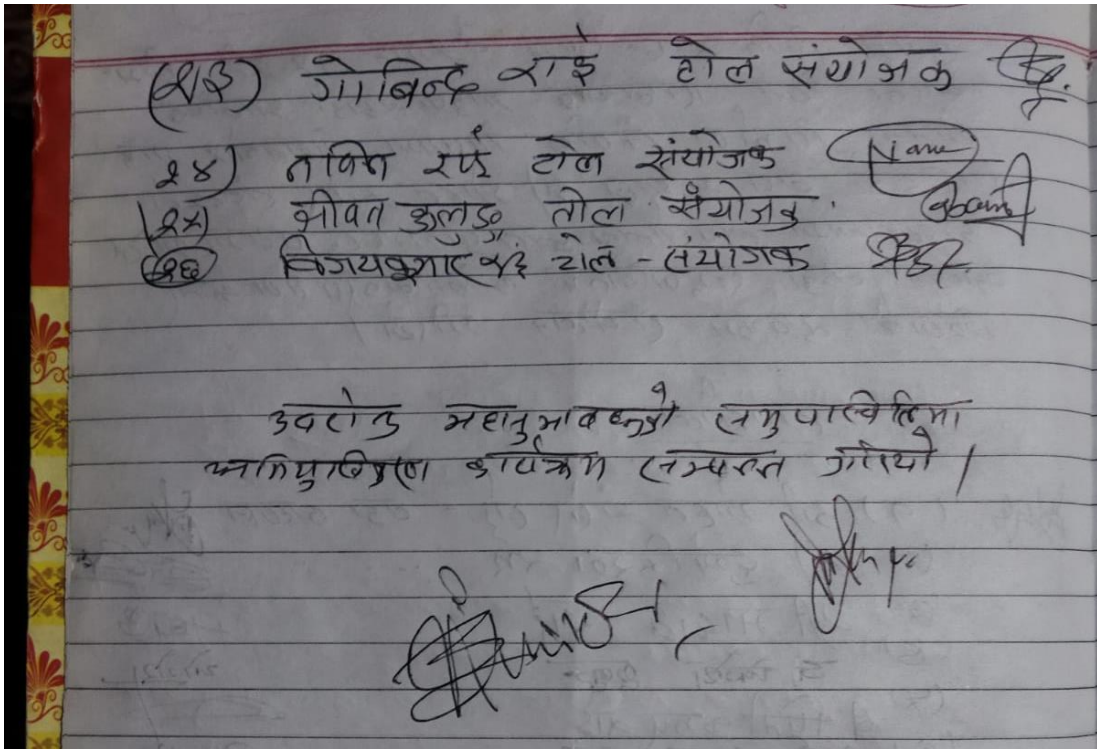 (२३) गोबिन्द राई टोल संयोजक
२४) नविन राई टोल संयोजक
२५) जीवन कुलुङ्ग तोल संयोजक
२६ विजयकुमार राई टोल - संयोजक
उपरोक्त महानुभावहरुको समुपस्थितिमा
अभिमुखिकरण कार्यक्रम सम्पन्न गरियो।